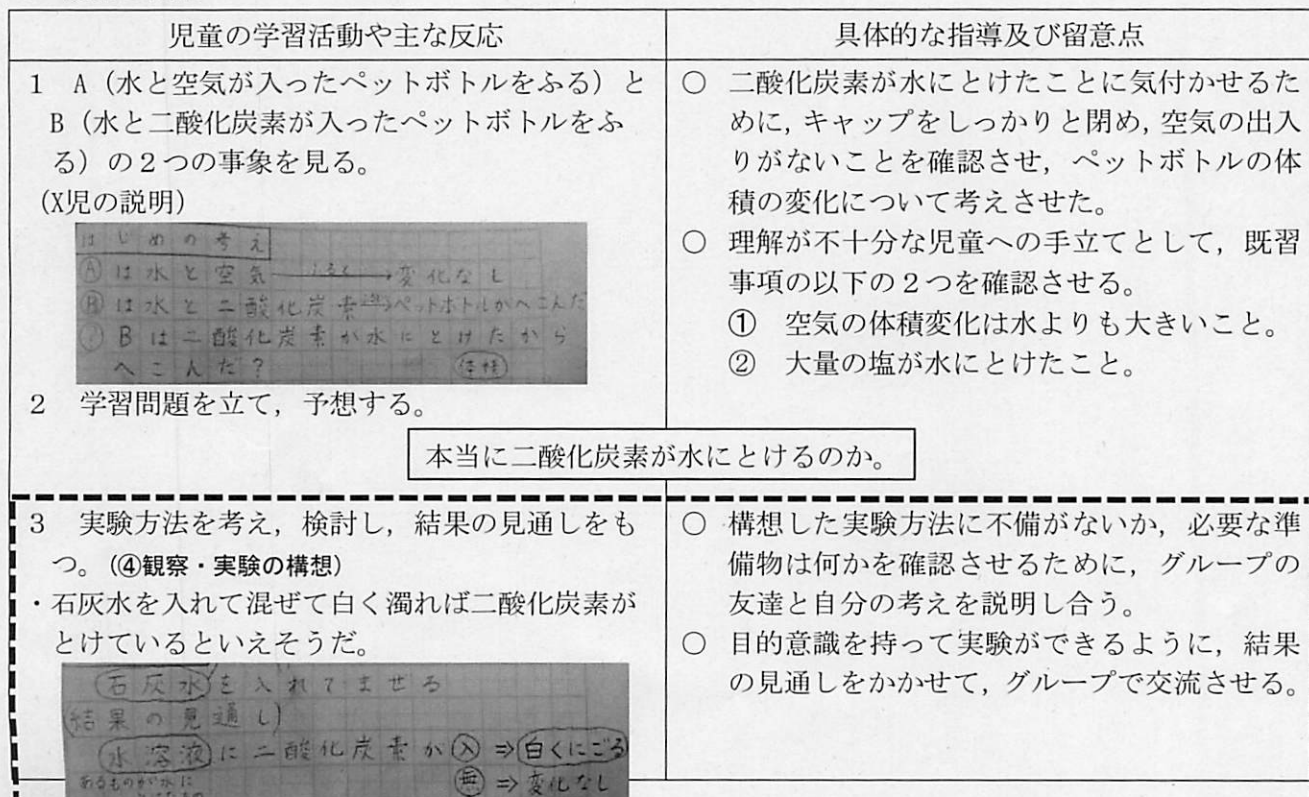 児童の学習活動や主な反応
1 A（水と空気が入ったペットボトルをふる）と
B（水と二酸化炭素が入ったペットボトルをふ
る）の２つの事象を見る。
(X児の説明)
はじめの考え
Ⓐは水と空気 ふると→変化なし
Ⓑは水と二酸化炭素→ペットボトルがへこんだ
Bは二酸化炭素が水にとけたから
へこんだ？ 体積
2 学習問題を立て，予想する。
具体的な指導及び留意点
○ 二酸化炭素が水にとけたことに気付かせるた
めに，キャップをしっかりと閉め，空気の出入
りがないことを確認させ，ペットボトルの体
積の変化について考えさせた。
○ 理解が不十分な児童への手立てとして，既習
事項の以下の２つを確認させる。
① 空気の体積変化は水よりも大きいこと。
② 大量の塩が水にとけたこと。
本当に二酸化炭素が水にとけるのか。
3 実験方法を考え，検討し，結果の見通しをも
つ。(④観察・実験の構想)
・石灰水を入れて混ぜて白く濁れば二酸化炭素が
とけているといえそうだ。
石灰水を入れてまぜる
(結果の見通し)
水溶液に二酸化炭素が㊅⇒白くにごる
あるものが水に
㊍⇒変化なし
○ 構想した実験方法に不備がないか，必要な準
備物は何かを確認させるために，グループの
友達と自分の考えを説明し合う。
○ 目的意識を持って実験ができるように，結果
の見通しをかかせて，グループで交流させる。